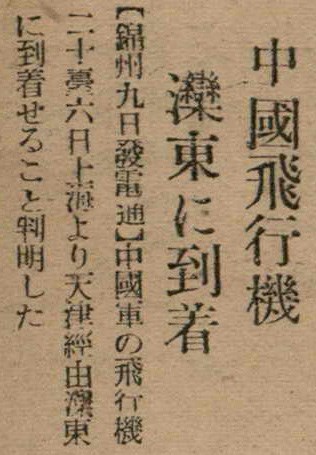 中國飛行機
灤東に到着
【錦州九日發電通】中國軍の飛行機
二十臺六日上海より天津經由灤東
に到着せること判明した